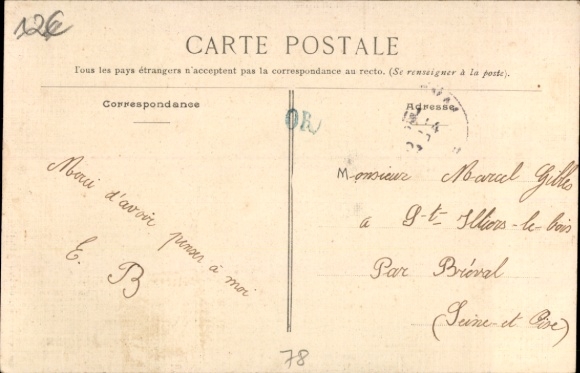 12€
CARTE POSTALE
Tous les pays étrangers n'acceptent pas la correspondance au recto. (Se renseigner à la poste).
Correspondance
Adresse
OR
Merci d'avoir penser à moi
E. B
Monsieur Marcel Gilles
a St- Illiers-le-bois
Par Bréval
(Seine-et Oise)
78